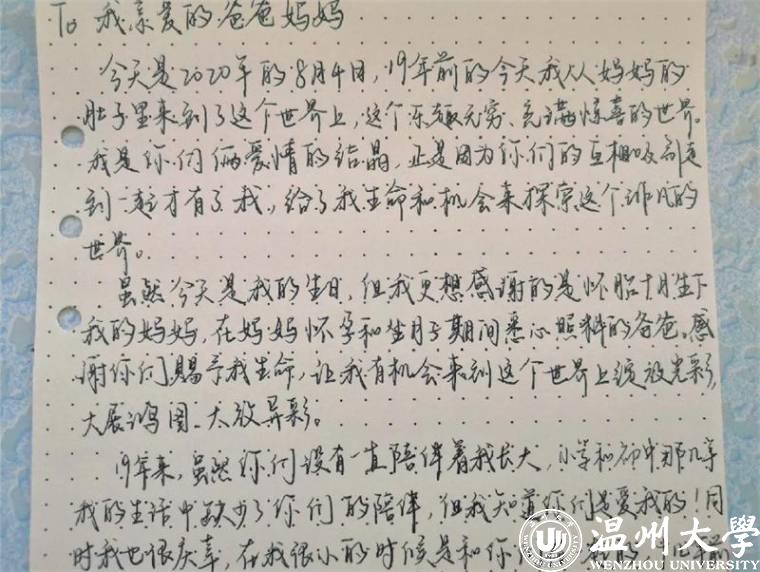 To 我亲爱的爸爸妈妈
今天是2020年的8月4日，19年前的今天我从妈妈的
肚子里来到了这个世界上，这个乐趣无穷、充满惊喜的世界。
我是你们俩爱情的结晶，正是因为你们的互相吸引走
到一起才有了我，给了我生命和机会来探索这个非凡的
世界。
虽然今天是我的生日，但我更想感谢的是怀胎十月生下
我的妈妈，在妈妈怀孕和坐月子期间悉心照料的爸爸。感
谢你们赐予我生命，让我有机会来到这个世界上绽放光彩，
大展鸿图、大放异彩。
19年来，虽然你们没有一直陪伴着我长大，小学和初中那几年
我的生活中缺少了你们的陪伴，但我知道你们是爱我的！同
时我也很庆幸，在我很小的时候是和你
温州大学
WENZHOU UNIVERSITY